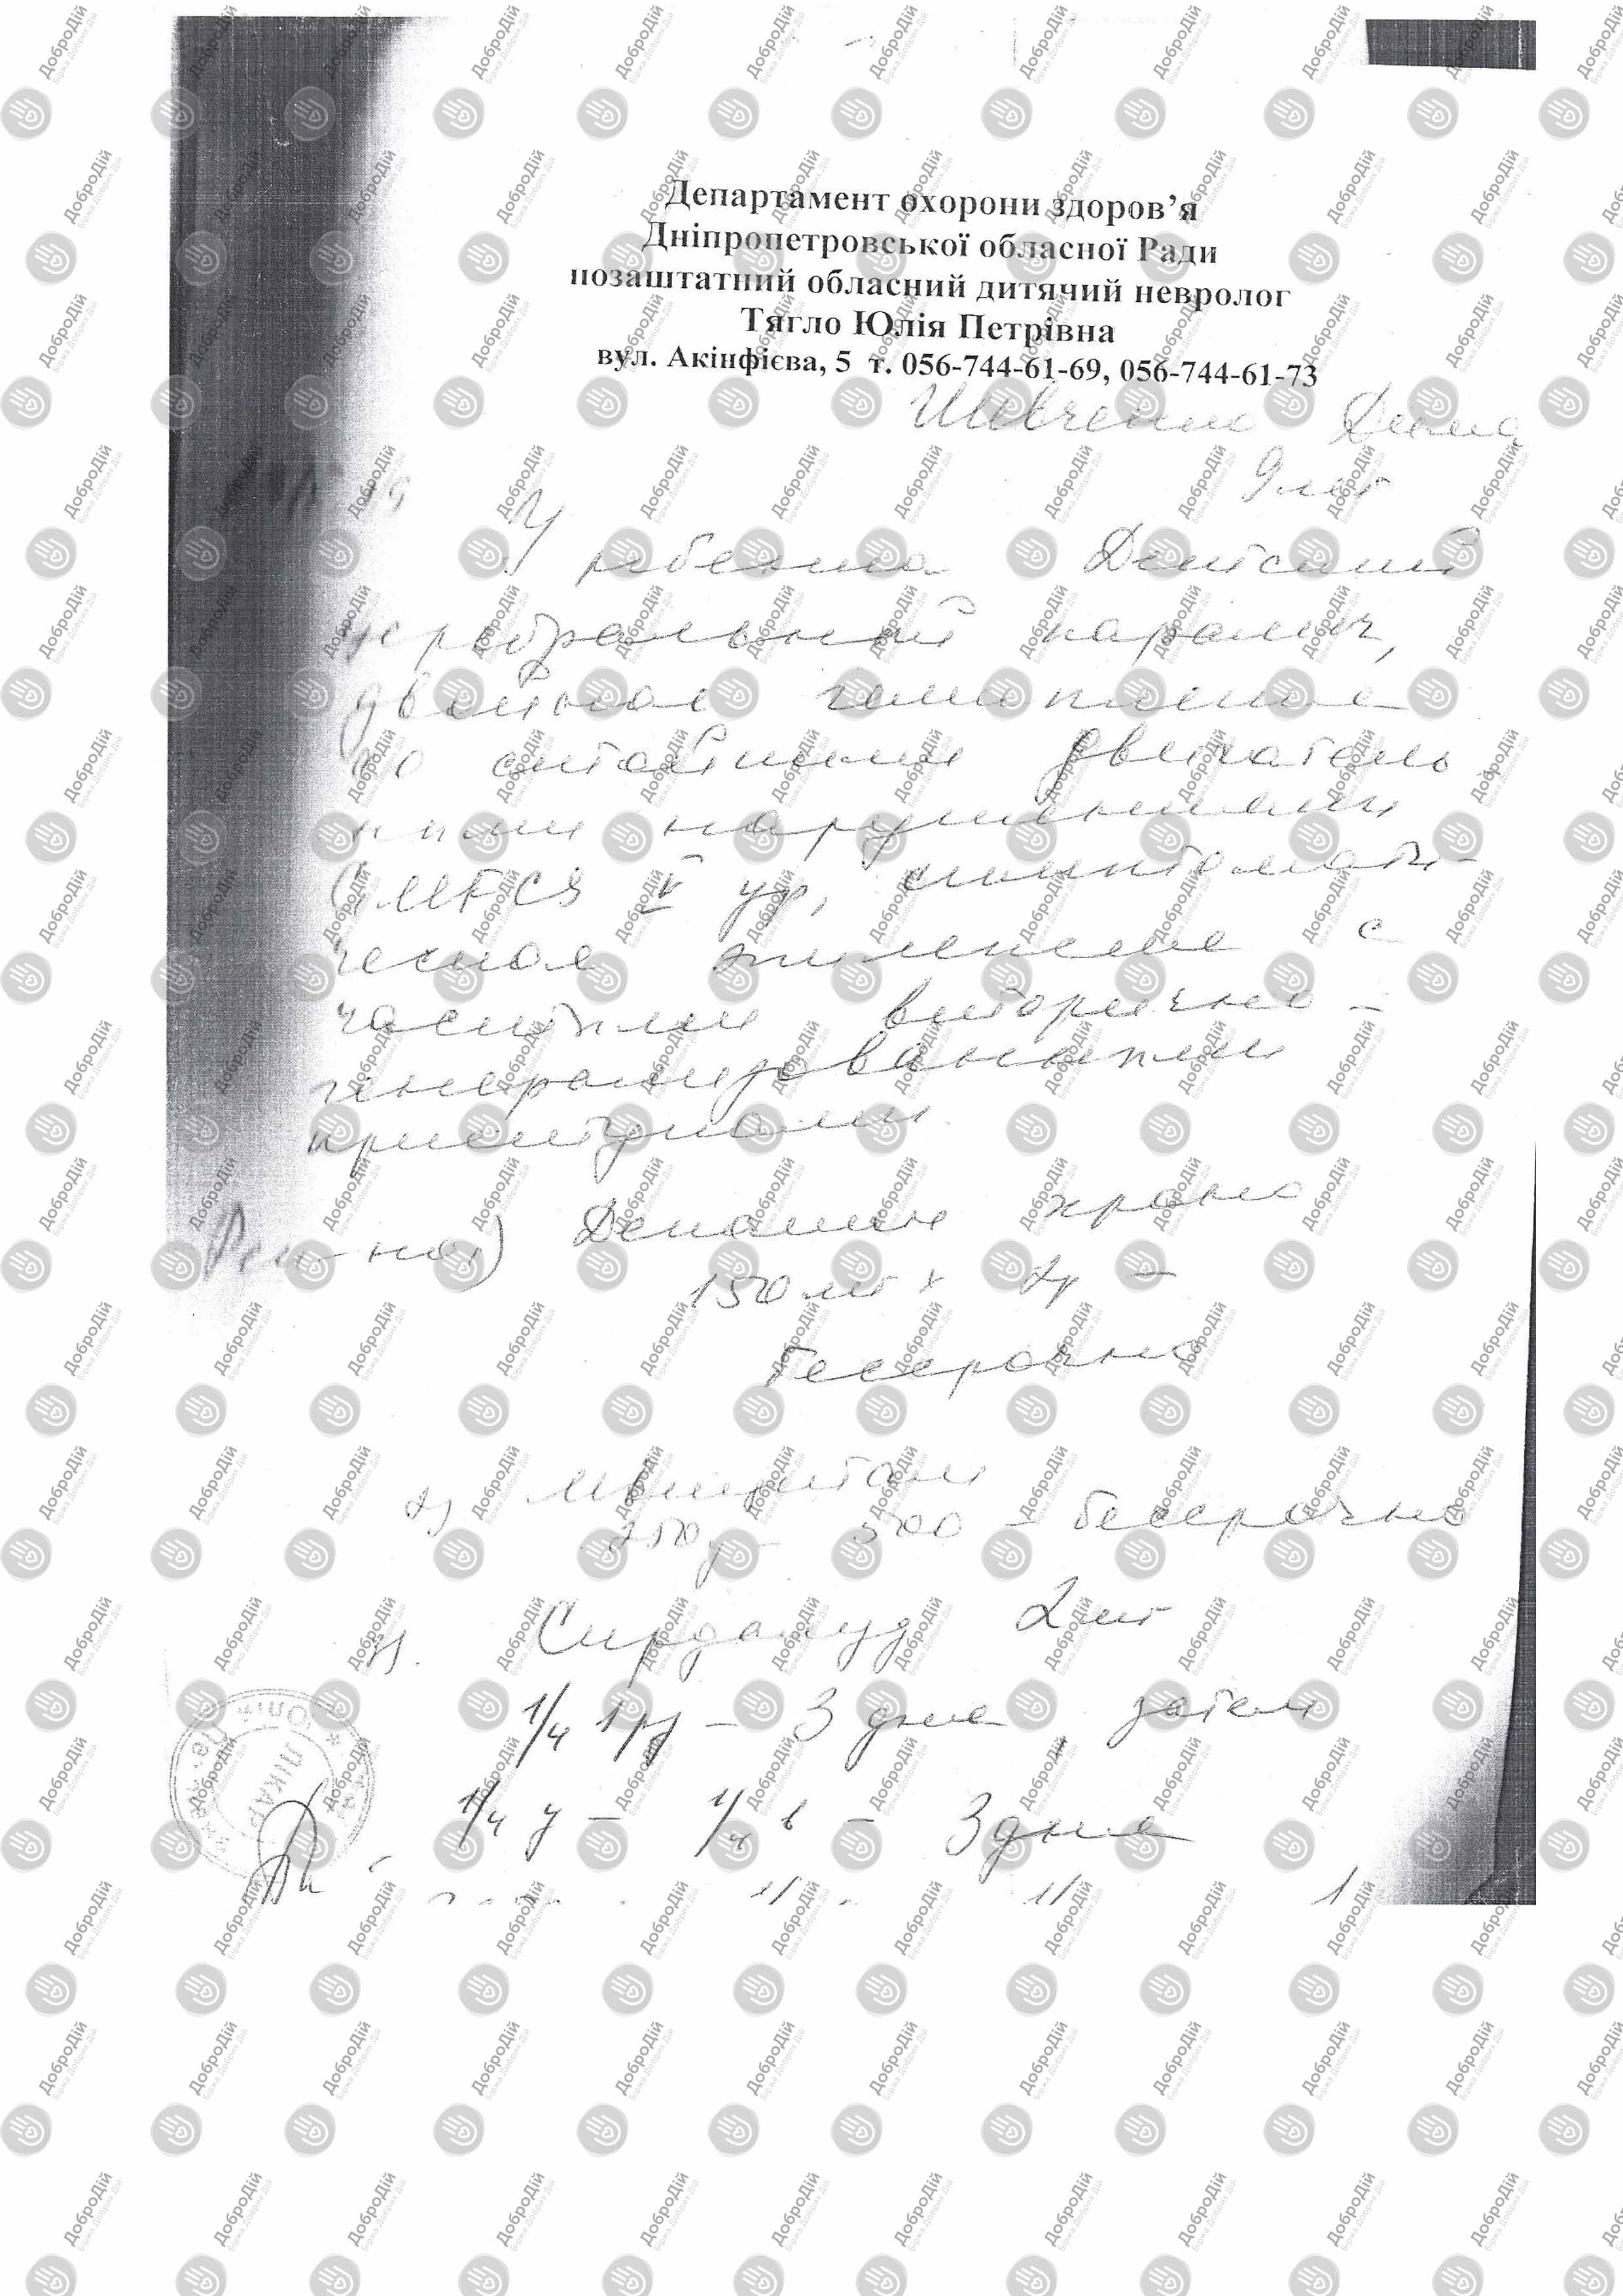 Департамент охорони здоров’я
Дніпропетровської обласної Ради
позаштатний обласний дитячий невролог
Тягло Юлія Петрівна
вул. Акінфієва, 5 т. 056-744-61-69, 056-744-61-73
Шевченко Дима
9 лет
У ребенка Детский
церебральный паралич,
двойная гемиплегия
со стойкими двигатель
ными нарушениями
GMFCS V ур, симптомати-
ческая эпилепсия с
частыми вторично-
генерализованными
приступами.
1) Депакин хроно
150 мг х 2р –
бессрочно
2)
250 у – 500 – бессрочно
3). Сирдалуд 2 мг
1/4 1 рд – 3 дня, затем
1/4 у – 1/4 в – 3 дня
ЛІКАР
ДоброДій
Біржа Добрих Дій